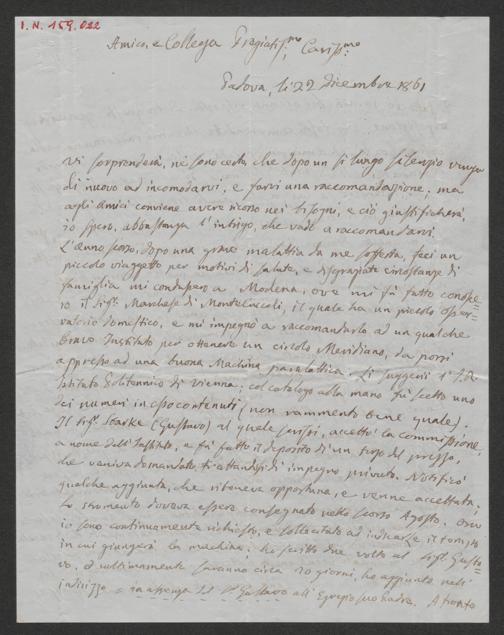 I. N. 159.022
Amico, e Collega Pregiatis.mo, Cariss.mo
Padova, li 22 Dicembre 1861
Vi sorprenderà, ne son certo, che dopo un sì lungo silenzio venga
di nuovo ad incomodarvi, e farvi una raccomandazione; ma
agli Amici conviene avere ricorso nei bisogni, e ciò giustificherà,
io spero, abbastanza l'intrigo, che vado a raccomandarvi.
L'anno scorso, dopo una grave malattia da me sofferta, feci un
piccolo viaggetto per motivi di salute, e disgraziate circostanze di
famiglia mi condussero a Modena, ove mi fu fatto conosce=
re il Sig.r Marchese di Montecuccoli, il quale ha un piccolo osser=
vatorio domestico, e mi impegnò a raccomandarlo ad un qualche
bravo Instituto per ottenere un circolo Meridiano, da porsi
appresso ad una buona Macchina parallattica. Gli suggerii l'I.R.
Istituto Politecnico di Vienna; col catalogo alla mano fu scelto uno
dei numeri in esso contenuti (non rammento bene quale).
Il Sig.r Starke (Gustavo) al quale scrissi, accettò la commissione,
a nome dell'Instituto, e fu fatto il deposito di un terzo del prezzo,
che veniva domandato, trattandosi di impegno privato. Notificò
qualche aggiunta, che riteneva opportuna, e venne accettata;
Lo strumento doveva essere consegnato nello scorso Agosto. Ora
io sono continuamente richiesto, e sollecitato ad indicare il tempo
in cui giungerà la macchina; ho scritto due volte al Sig.r Gusta=
vo, ed ultimamente saranno circa 20 giorni, ho aggiunto nell'
indirizzo = in assenza del S.r Gustavo all'Egregio suo Padre. A fronte